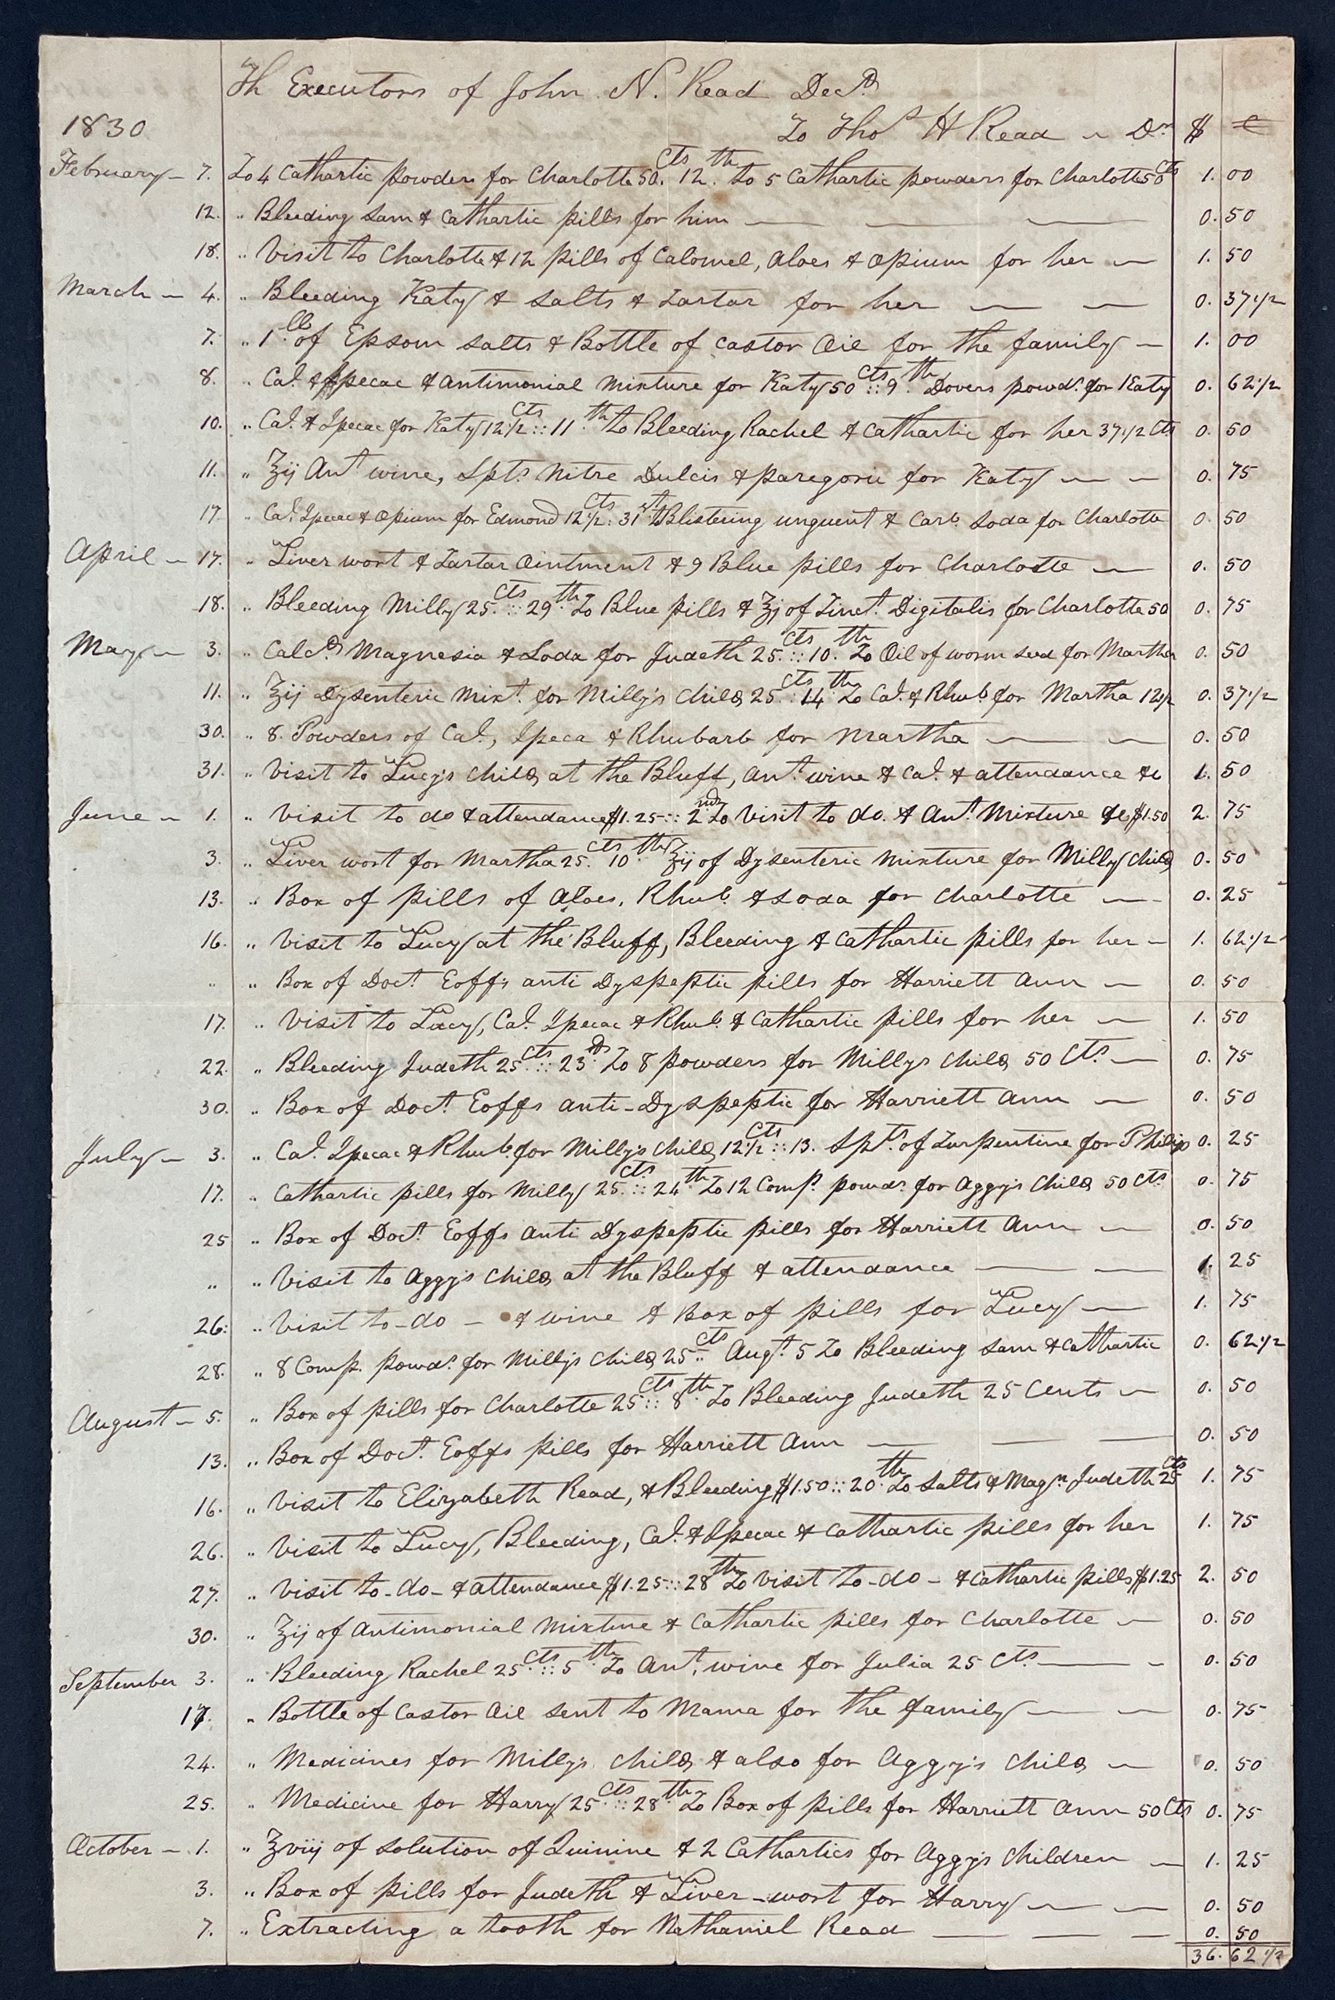 Th Executors of John N. Read Decd
1830 To Thos H Read ~ Dr $ C
February ~ 7. To 4 Cathartic powders for Charlotte 50 cts. 12th. To 5 Cathartic powders for Charlotte 50 cts 1. 00
12. " Bleeding Sam & Cathartic pills for him — — — 0. 50
18. " Visit to Charlotte & 12 pills of Calomel, Aloes & Opium for her — 1. 50
March ~ 4. " Bleeding Katy & Salts & Tartar for her — — — 0. 37 1/2
7. " 1 lb of Epsom Salts & Bottle of Castor Oil for the family — 1. 00
8. " Cal. & Ipecac & antimonial mixture for Katy 50 cts :: 9th Dovers powds. for Katy 0. 62 1/2
10. " Cal. & Ipecac for Katy 12 1/2 cts :: 11th to Bleeding Rachel & Cathartic for her 37 1/2 cts 0. 50
11. " ʒij Ant. wine, Spts Nitre Dulcis & paregoric for Katy — — 0. 75
17 " Cal. Ipecac & Opium for Edmond 12 1/2 cts : 31st Blistering unguent & Carb. Soda for Charlotte 0. 50
April ~ 17. " Liver wort & Tartar Ointment & 9 Blue pills for Charlotte — 0. 50
18. " Bleeding Milly 25 cts :: 29th To Blue pills & ʒj of Tinct. Digitalis for Charlotte 50 0. 75
May ~ 3. " Calcd Magnesia & Soda for Judeth 25 cts :: 10th. To Oil of worm seed for Martha 0. 50
11. " ʒij Dysenteric Mixt. for Milly's child 25 cts : 14th To Cal. & Rhub. for Martha 12 1/2 0. 37 1/2
30. " 8. Powders of Cal., Ipeca & Rhubarb for Martha — — 0. 50
31. " Visit to Lucy's child at the Bluff, Ant. wine & Cal. & attendance &c 1. 50
June ~ 1. " Visit to do & attendance $1.25 :: 2nd To Visit to do. & Ant. Mixture &c $1.50 2. 75
3. " Liver wort for Martha 25 cts. 10th ʒij of Dysenteric mixture for Milly child 0. 50
13. " Box of pills of Aloes, Rhub. & Soda for Charlotte — - 0. 25
16. " Visit to Lucy at the Bluff, Bleeding & Cathartic pills for her — 1. 62 1/2
" " Box of Doct. Eoff's anti Dyspeptic pills for Harriett Ann — 0. 50
17. " Visit to Lucy, Cal. Ipecac & Rhub. & Cathartic pills for her — 1. 50
22. " Bleeding Judeth 25 cts :: 23ds To 8 powders for Milly's child 50 Cts — 0. 75
30. " Box of Doct. Eoffs anti-Dyspeptic for Harriett Ann — 0. 50
July ~ 3. " Cal. Ipecac & Rhub. for Milly's child 12 1/2 cts :: 13. Spts. of Turpentine for Philip 0. 25
17. " Cathartic pills for Milly 25 cts :: 24th To 12 Comp. powds. for Aggy's child 50 cts 0. 75
25 " Box of Doct. Eoffs anti Dyspeptic pills for Harriett Ann — 0. 50
" " Visit to Aggy's child at the Bluff & attendance — — 1. 25
26: " Visit to - do - & wine & Box of pills for Lucy — 1. 75
28. " 8 Comp. powds. for Milly's child 25 cts :: Augt. 5 To Bleeding Sam & Cathartic 0. 62 1/2
August ~ 5. " Box of pills for Charlotte 25 cts :: 8th To Bleeding Judeth 25 Cents — 0. 50
13. " Box of Doct. Eoffs pills for Harriett Ann — — — 0. 50
16. " Visit to Elizabeth Read, & Bleeding $1.50 :: 20th To Salts & Magn. Judeth 25 cts 1. 75
26. " Visit to Lucy, Bleeding, Cal. & Ipecac & Cathartic pills for her 1. 75
27. " Visit to - do - & attendance $1.25 :: 28th To Visit to - do - & Cathartic pills $1.25 2. 50
30. " ʒij of Antimonial Mixture & Cathartic pills for Charlotte — 0. 50
September 3. " Bleeding Rachel 25 cts :: 5th To Ant. wine for Julia 25 cts — - 0. 50
17. " Bottle of Castor Oil sent to Mama for the family — — 0. 75
24. " Medicines for Milly's child & also for Aggy's child — 0. 50
25. " Medicine for Harry 25 cts :: 28th To Box of pills for Harriett Ann 50 Cts 0. 75
October ~ 1. " ʒviij of solution of Quinine & 2 Cathartics for Aggy's children — 1. 25
3. " Box of pills for Judeth & Liver-wort for Harry — — 0. 50
7. " Extracting a tooth for Nathaniel Read — — — 0. 50
36. 62 1/2